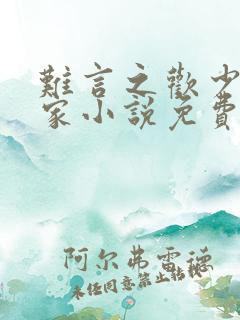 難言之歡少
家小說免費
阿尔弗雷德
未经同意禁止转载